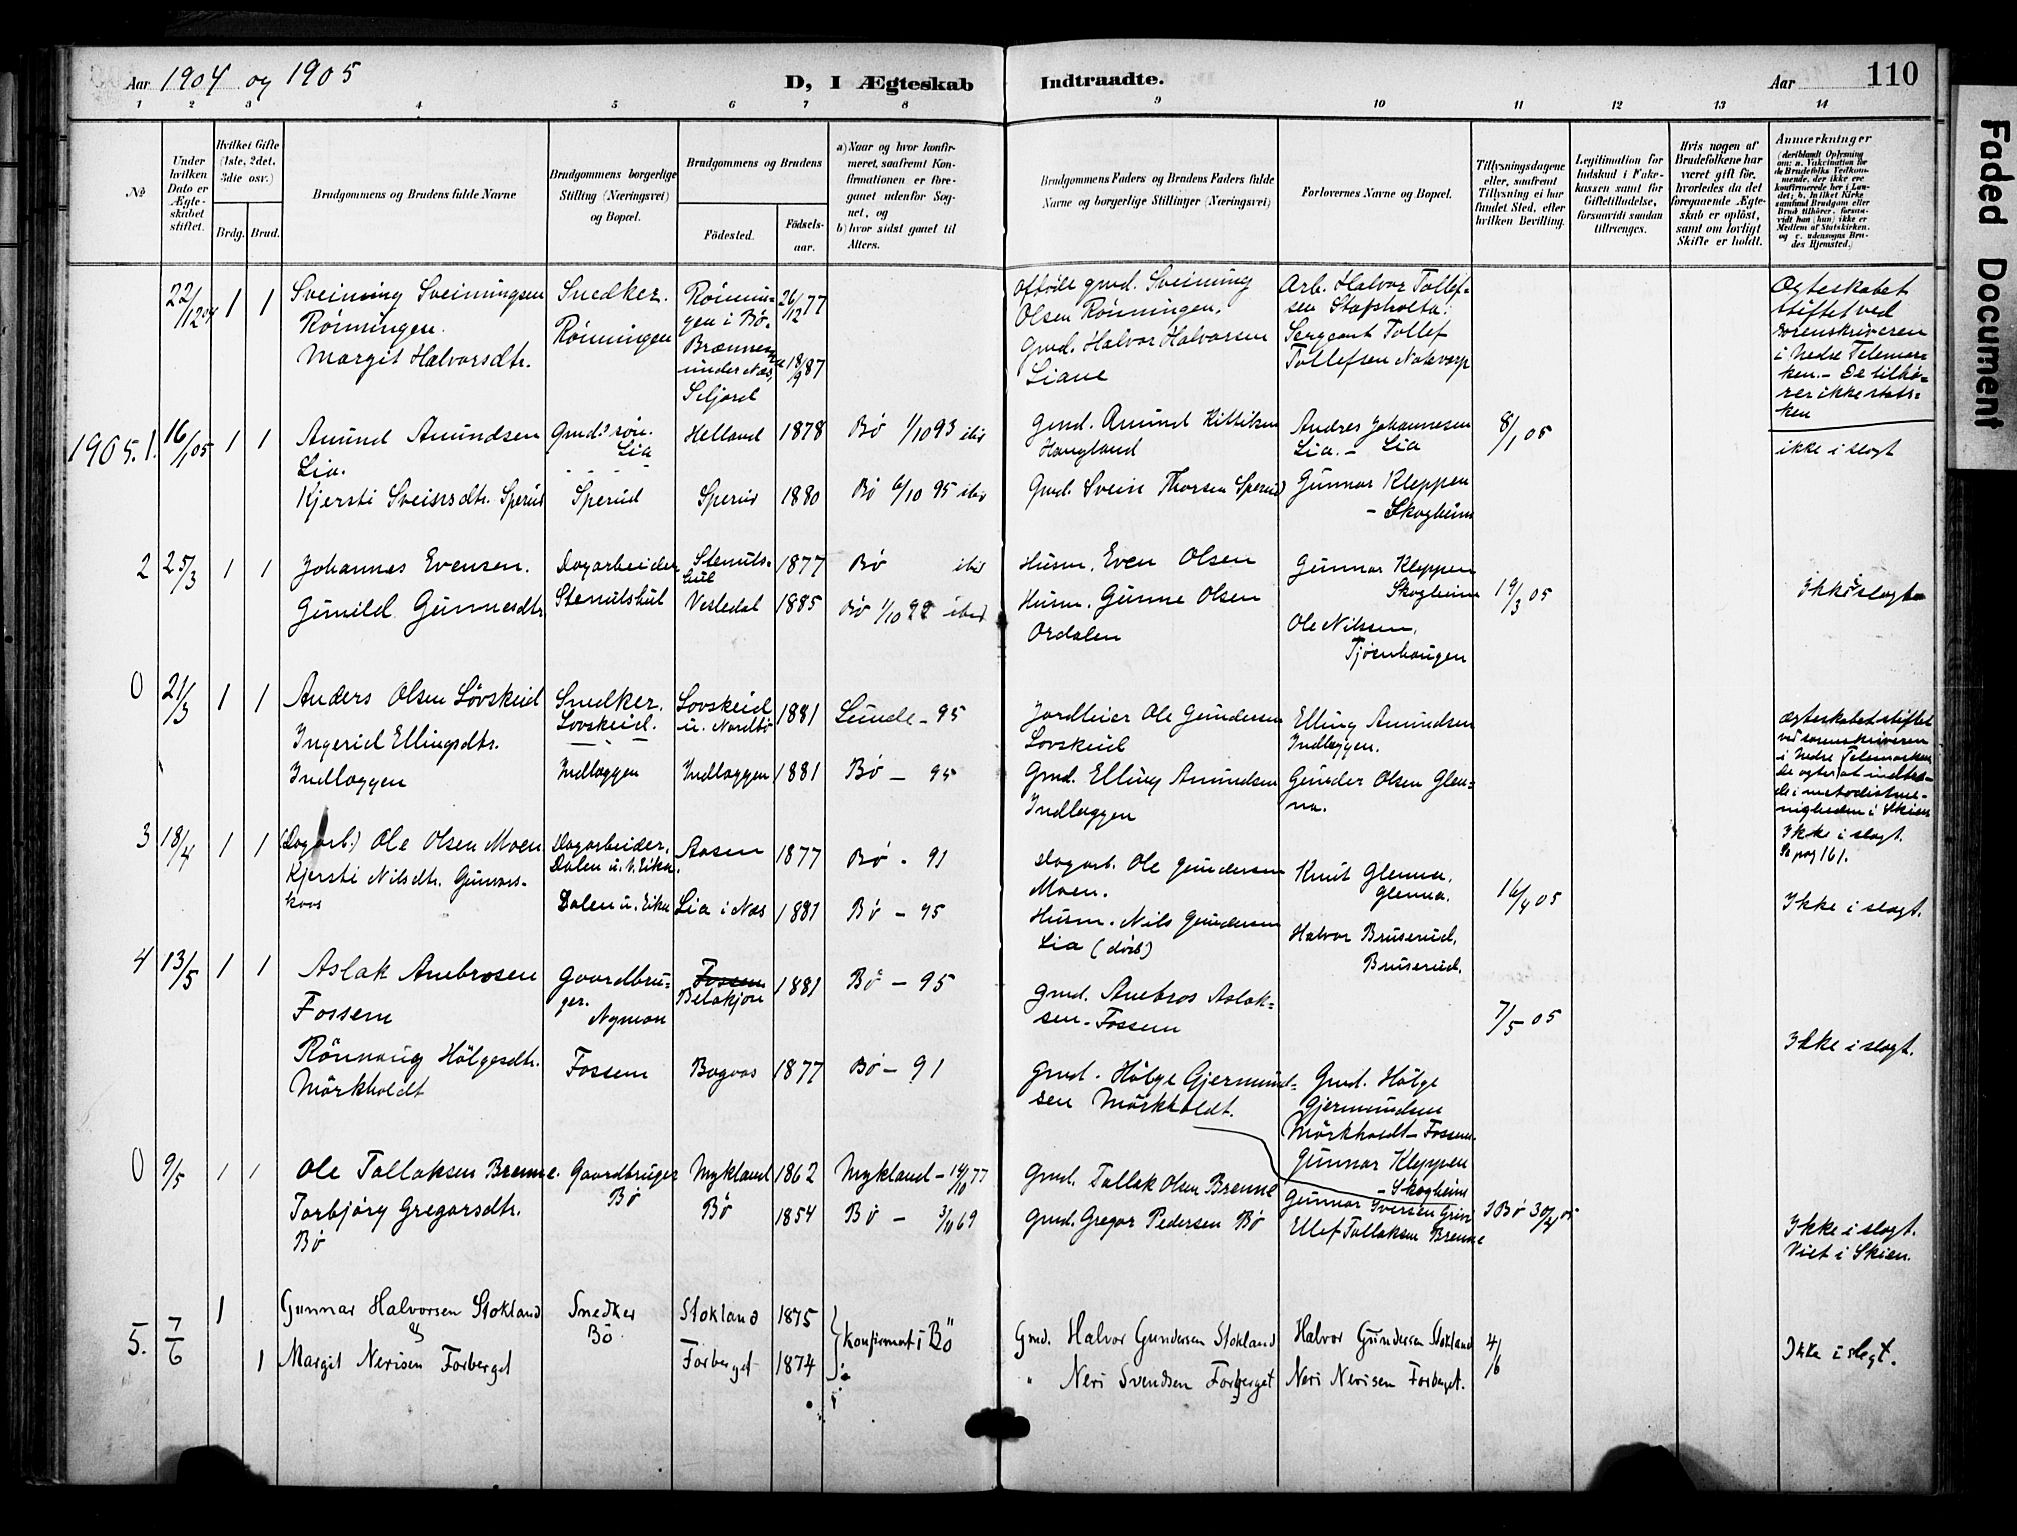 Aar 1904 og 1905
D, I Ægteskab Indtraadte.
Aar 110
1 2 3 4 5 6 7 8 9 10 11 12 13 14
No
Under hvilken Dato er Ægteskabet stiftet.
Hvilket Gifte (1ste, 2det, 3die osv.)
Brdg. Brud.
Brudgommens og Brudens fulde Navne
Brudgommens borgerlige Stilling (Næringsvei) og Bopæl.
Brudgommens og Brudens
Fødested.
Fødselsaar.
a) Naar og hvor konfirmeret, saafremt Konfirmationen er foregaaet udenfor Sognet, og
b) hvor sidst gaaet til Alters.
Brudgommens Faders og Brudens Faders fulde Navne og borgerlige Stillinger (Næringsvei)
Forlovernes Navne og Bopæl.
Tillysningsdagene eller, saafremt Tillysning ei har fundet Sted, efter hvilken Bevilling.
Legitimation for Indskud i Enkekassen samt for Giftetilladelse, forsaavidt saadan tiltrænges.
Hvis nogen af Brudefolkene har været gift før, hvorledes da det foregaaende Ægteskab er opløst, samt om lovligt Skifte er holdt.
Anmærkninger
(deriblandt Oplysning om: a. Vakcination for de Brudefolks Vedkommende, der ikke ere konfirmerede her i Landet; b. hvilket Kirkesamfund Brudgom eller Brud tilhører, forsaavidt han (hun) ikke er Medlem af Statskirken, og c. udensogns Brudes Hjemsted.)
22/12 04 1 1
Sveinung Sveinungsen
Rönningen.
Margit Halvorsdtr.
Snedker.
Rönningen
Rönnin-
gen i Bø.
under Næs,
Siljord
26/12 77
18/9 87
Gmd. Sveinung
Olsen Rönningen.
Gmd. Halvor Halvorsen
Liane
Arb. Halvor Tollef-
sen Stafsholta.
Sergeant Tollef
Tollefsen
Ægteskabet
stiftet ved
sorenskriveren
i Nedre Telemar-
ken. – De tilhø-
rer ikke stats-
ken
1905. 1. 16/1 05 1 1
Amund Amundsen
Lia.
Kjersti Sveinsdtr. Sperud
Gmds. søn.
Lia
Sperud
Helland 1878
Sperud 1880
Bø 1/10 93 ibid
Bø 6/10 95 ibid
Gmd. Amund Kittilsen
Haugland
Gmd. Svein Thorsen Sperud
Andres Johannesen
Lia. – Lia
Gunnar Kleppen
– Skogheim
8/1 05
ikke i slegt
2 25/3 1 1
Johannes Evensen.
Gunild Gunnesdtr
Dagarbeider
Stenulshul
Stenuls-
hul
Vesledal
1877
1885
Bø ibid
Bø 1/10 99 ibid
Husm. Even Olsen
Husm. Gunne Olsen
Ordalen
Gunnar Kleppen
Skogheim
Ole Nilsen,
Tjønnhaugen
19/3 05
Ikke i slegt
0 21/3 1 1
Anders Olsen Lövskeid
Ingerid Ellingsdtr.
Indlæggen
Snedker.
Lovskeid.
Indlæggen
Lovskeid
u. Nordbø
Indlæggen
1881
1881
Lunde – 95
Bø – 95
Jordleier Ole Gundersen
Lovskeid
Gmd. Elling Amundsen
Indlæggen
Elling Amundsen
Indlæggen.
Gunder Olsen Glen-
na.
Ægteskabet stiftet
ved sorenskriveren
i Nedre Telemarken
De agter at indtræ-
de i metodistme-
nigheden i Skien
Ikke i slegt.
Se pag 161.
3 18/4 1 1
(Dagarb.) Ole Olsen Moen
Kjersti Nilsdtr. Gunnes-
kaas
Dagarbeider,
Dalen u. N. Eika.
Dalen u. Eika
Aasen 1877
Lia i Næs 1881
Bø - 91
Bø – 95
Dagarb. Ole Gundersen
Moen.
Husm. Nils Gundersen
Lia (død)
Knut Glenna,
Glenna.
Halvor Bruserud,
Bruserud.
16/4 05
Ikke i slegt.
4 13/5 1 1
Aslak Ambrosen
Fossem
Rönnaug Hölgesdtr.
Mörkholdt
Gaardbru-
ger.
Nyman
Fossem
Fossem
1881
Bagaas 1877
Bø – 95
Bø – 91
Gmd. Ambros Aslak-
sen – Fossem
Gmd. Hölge Gjermund-
sen Mörkholdt.
Gmd. Hölge
Gjermundsen
Mörkholdt – Fossem.
Gunnar Kleppen
– Skogheim
7/5 05
Ikke i slegt.
0 9/5 1 1
Ole Tallaksen Brenne.
Torbjörg Gregarsdtr.
Bø
Gaardbruger
Bø
Mykland 1862
Bø 1854
Mykland – 14/10 77
Bø – 3/11 69
Gmd. Tallak Olsen Brenne
Gmd. Gregar Pedersen Bø
Gunnar Iversen Grivi
Ellef Tallaksen Brenne
I Bø 30/4 05
Ikke i slegt.
Viet i Skien.
5. 7/6 1 1
Gunnar Halvorsen Stokland
og
Margit Nerisen Forberget
Snedker
Bö
Stokland 1875
Forberget 1874
konfirmat i Bö
Gmd. Halvor Gundersen Stokland
" Neri Svendsen Forberget
Halvor Gundersen Stokland
Neri Nerisen Forberget.
4/6
Ikke i slegt.
Faded Document